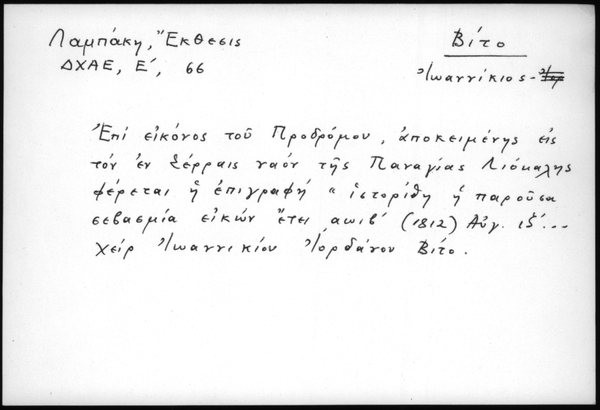 Λαμπάκη, "Έκθεσις
ΔΧΑΕ, Ε', 66
Βίτο
Ἰωαννίκιος -
Ἐπί εἰκόνος τοῦ Προδρόμου, ἀποκειμένης εἰς
τόν ἐν Σέρραις ναόν τῆς Παναγίας Λιόκαλης
φέρεται ἡ ἐπιγραφή " ἱστορίθη ἡ παροῦσα
σεβασμία εἰκών ἔτει αωιβ' (1812) Αὐγ. ιξ'...
χείρ Ἰωαννικίου Ἰορδάνου Βίτο.